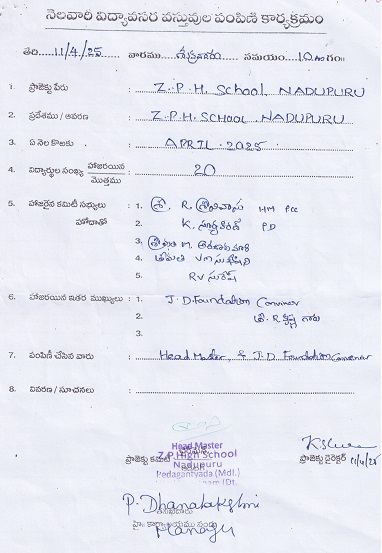 నెలవారీ విద్యావసర వస్తువుల పంపిణి కార్యక్రమం
తేది....11/4/25.... వారము...శుక్రవారం... సమయం...10 గం॥
1. ప్రాజెక్టు పేరు : Z.P.H. School, NADUPURU
2. ప్రదేశము / ఆవరణ : Z.P.H. SCHOOL NADUPURU
3. ఏ నెల కొఱకు : APRIL - 2025
4. విద్యార్థుల సంఖ్య హాజరయిన / మొత్తము : 20
5. హాజరైన కమిటీ సభ్యులు : 1. శ్రీ. R. శ్రీనివాసు HM
హోదాతో 2. K. సూర్యకిరణ్ P.D
3. శ్రీమతి M. అరుణకుమారి
4.
5. RV సురేష్
6. హాజరయిన ఇతర ముఖ్యులు : 1. J.D Foundation Convinor
2. R కృష్ణ గారు
3.
7. పంపిణీ చేసిన వారు : Head Master, & J.D. Foundation Convenor
8. వివరణ / సూచనలు :
Head Master
Z.P.High School
Nadupuru
Pedagantyada (Mdl.)
ప్రాజెక్టు కమిటీ
ప్రాజెక్టు డైరెక్టర్ 11/4/25
P. Dhanalakshmi
Manager